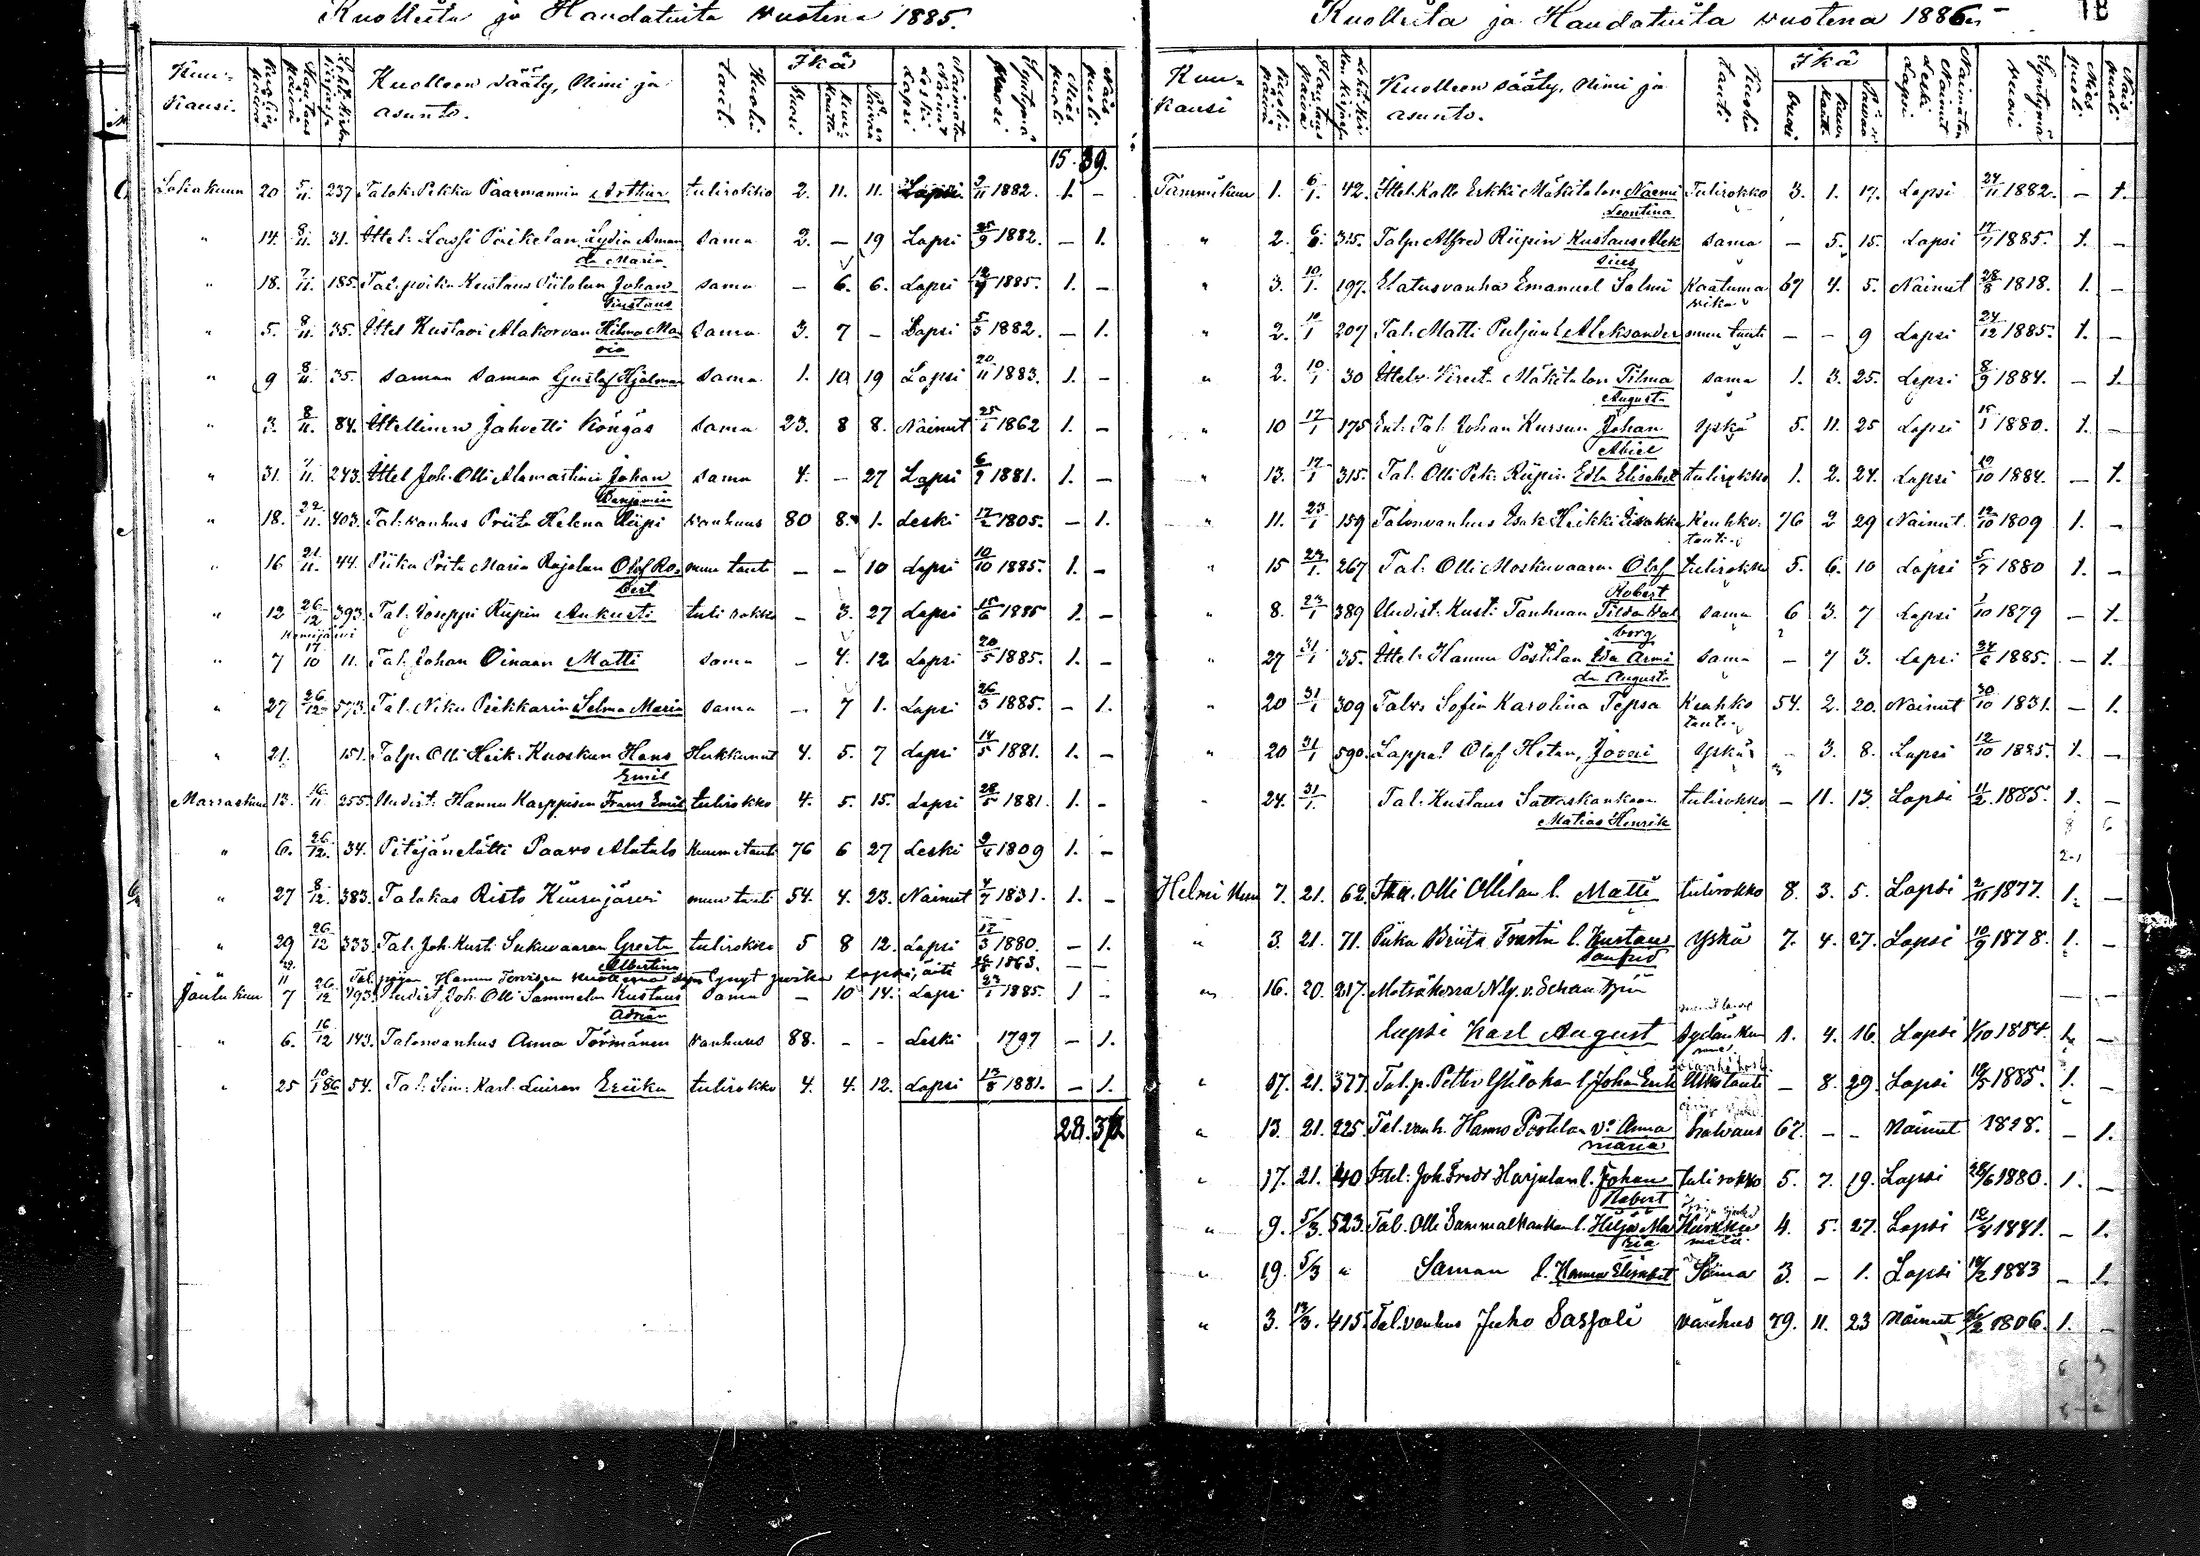 Kuolleita ja Haudatuita vuotena 1885.
Kuu-kausi. Kuolin päivä Hautaus päivä Kuolleen sääty, Nimi ja asunto. Kuolin tauti. Ikä Vuosi Kuu-kautta Päivää Naimaton Nainut Leski Lapsi Syntymä vuosi Mies puoli Nais puoli.
15. 39.
Lokakuun 20 5/11. 237 Talok. Pekka Paarmannin Arthur tulirokko 2. 11. 11. Lapsi 9/11 1882. 1. -
" 14. 8/11. 31. Ittel. Lassi Poikelan Lydia Aman sama 2. - 19 Lapsi 25/9 1882. - 1.
da Maria
" 18. 7/11. 185. Tal. poika Kustaus Piitolan Johan sama - 6. 6. Lapsi 12/4 1885. 1. -
Gustaus
" 5. 8/11. 35. Ittel Kustavi Alakorvan Hilma Ma sama 3. 7 - Lapsi 5/3 1882. - 1.
ria
" 9 8/11. 35. saman saman Gustaf Hjalmar sama 1. 10 19 Lapsi 20/11 1883. 1. -
" 3. 8/11. 84. Ittellinen Jahvetti Köngäs sama 23. 8 8. Nainut 25/1 1862 1. -
" 31. 7/11. 243. Ittel Joh. Olli Alamartin Johan sama 4. - 27 Lapsi 6/9 1881. 1. -
Benjamin
" 18. 22/11. 403. Tal. vanhus Priita Helena Riipi vanhuus 80 8. 1. Leski 17/2 1805. - 1.
" 16 21/11. 44. Piika Prita Maria Rajalan Olof Ro- muu tauti - - 10 Lapsi 10/10 1885. 1. -
bert
" 12 26/12 393. Tal. Joseppi Riipin Aukusti tuli rokko - 3. 27 Lapsi 15/6 1885 1. -
Kemijärvi
" 7 17/10 11. Tal. Johan Oinaan Matti sama - 4. 12 Lapsi 20/5 1885. 1. -
" 27 26/12 573. Tal. Niku Pirkkarin Selma Maria sama - 7 1. Lapsi 26/3 1885. - 1.
" 21. 151. Talp. Olli Heik. Kuoskun Hans Hukkunut 4. 5. 7 Lapsi 14/5 1881. 1. -
Emil
Marraskuu 13. 16/11 255. Uudist. Hannu Karppisen Frans Emil tulirokko 4. 5. 15. Lapsi 28/5 1881. 1. -
" 6. 26/12. 34. Pitäjänelätti Paavo Alatalo Kuume tauti 76 6 27 Leski 9/4 1809 1. -
" 27 8/12. 383. Talokas Risto Kiurujärvi muu tauti 54. 4. 23. Nainut 4/7 1831. 1. -
" 29 26/12 333. Tal. Joh. Kust. Sukuvaaran Greeta tulirokko 5 8 12. Lapsi 17/3 1880. - 1.
Albertina
Joulukuu 7 26/12 493. Uudist. Joh. Olli Sammelan Kustaus sama - 10 14. Lapsi 23/1 1885. 1 -
Adrian
" 6. 16/12 143. Talonvanhus Anna Törmänen vanhuus 88. - - Leski 1797 - 1.
" 25 10/1 86 54. Tal. Sim. Karl. Luiron Eriika tulirokko 4. 4. 12. Lapsi 13/8 1881. - 1.
28.
Kuolleita ja Haudatuita vuotena 1886
18
Kuu-kausi Kuolin päivä Hautaus päivä Kuolleen sääty, Nimi ja asunto. Kuolin tauti Ikä Vuosi Kuu-kautta Päivää Naimaton Nainut Leski Lapsi Syntymä vuosi Mies puoli Nais puoli.
Tammikuu 1. 6/1. 42. Ittel. Kalle Erkki Mäkitalon Naemi Tulirokko 3. 1. 17. Lapsi 24/11 1882. - 1.
Leontina
" 2. 6/1. 315. Talp. Alfred Riipin Kustaus Alek sama - 5. 15. Lapsi 17/7 1885. 1. -
sius
" 3. 10/1. 197. Elatusvanha Emanuel Salmi Kaatuma 67 4. 5. Nainut 28/8 1818. 1. -
vika
" 2. 10/1 207 Tal. Matti Puljun l. Aleksander muu tauti - - 9 Lapsi 24/12 1885. 1. -
" 2. 10/1 30 Ittelv. Kreeta Mäkitalon Tilma sama 1. 3. 25. Lapsi 8/9 1884. - 1.
Augusta
" 10 17/1 175 Ent. Tal. Johan Kursun Johan Yskä 5. 11. 25 Lapsi 15/1 1880. 1. -
Abiel
" 13. 17/1 315. Tal. Olli Pek. Riipin Edla Elisabet tulirokko 1. 2. 24. Lapsi 19/10 1884. - 1.
" 11. 23/1 159 Talonvanhus Esak Heikki Eisakka Keuhko 76 2 29 Nainut 12/10 1809 1. -
tauti
" 15 23/1. 267 Tal. Olli Moskuvaaran Olof tulirokko 5. 6. 10 Lapsi 5/7 1880 1. -
Robert
" 8. 23/1 389 Uudist. Kusti Tanhuan Tilda Wal sama 6 3. 7 Lapsi 1/10 1879 - 1.
borg
" 27 31/1 35. Ittel. Hannu Postilan Ida Armi sama - 7 3. Lapsi 24/6 1885. - 1.
da Augusta
" 20 31/1 309 Talvs. Sofia Karolina Tepsa Keuhko 54. 2. 20. Nainut 30/10 1831. - 1.
tauti
" 20 31/1 590. Lappal. Olof Hetan, Jouni Yskä - 3. 8. Lapsi 12/10 1885. 1. -
" 24. 31/1. Tal. Kustaus Sattaskankaan tulirokko - 11. 13. Lapsi 11/2. 1885. 1. -
Matias Henrik
Helmi kuu 7. 21. 62. Olli Ollilan l. Matti tulirokko 8. 3. 5. Lapsi 2/11 1877. 1. -
" 3. 21. 71. Piika Briita Trastin l. Kustaus Yskä 7. 4. 27. Lapsi 10/9 1878. 1. -
Sanfrid
" 16. 20. 217. Metsäherra N. Ly. v. Schantzin
lapsi Karl August Sydänkuu 1. 4. 16. Lapsi 1/10 1884. 1. -
me.
" 17. 21. 377. Tal. p. Petter Yliloka l. Johan Erik Ulkotauti - 8. 29. Lapsi 19/5 1885. 1. -
" 13. 21. 225. Tal. vanh. Hanno Postilan vo. Anna halvaus 67. - - Nainut 1818. - 1.
maria
" 17. 21. 40 Ittel. Joh. Fredr Harjulan l. Johan tulirokko 5. 7. 19. Lapsi 28/6 1880. 1. -
Robert
" 9. 5/3. 523. Tal. Olli Sammalkankaan l. Hilja Ma Kurkku 4. 5. 27. Lapsi 12/9 1881. - 1.
ria mätä.
" 19. 5/3 " Saman l. Hanna Elisabet Sama 3. - 1. Lapsi 18/2 1883 - 1.
" 3. 13/3. 415. Tal. vanhus Juho Sassali vanhus 79. 11. 23 Nainut 1806. 1. -